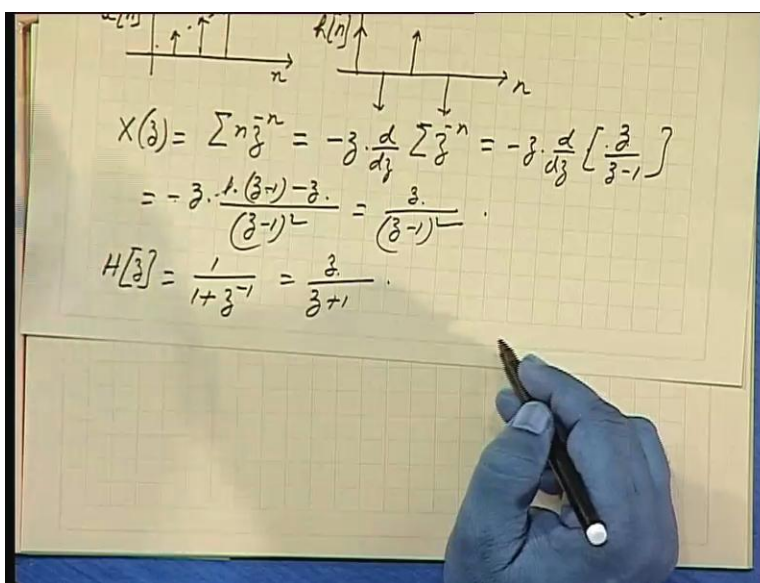 h[n]
n
n
X(z) = Σ n z^{-n} = -z · d/dz Σ z^{-n} = -z · d/dz [ z/(z-1) ]
= -z · (1·(z-1) - z)/(z-1)^2 = z/(z-1)^2 .
H[z] = 1/(1+z^{-1}) = z/(z+1) .